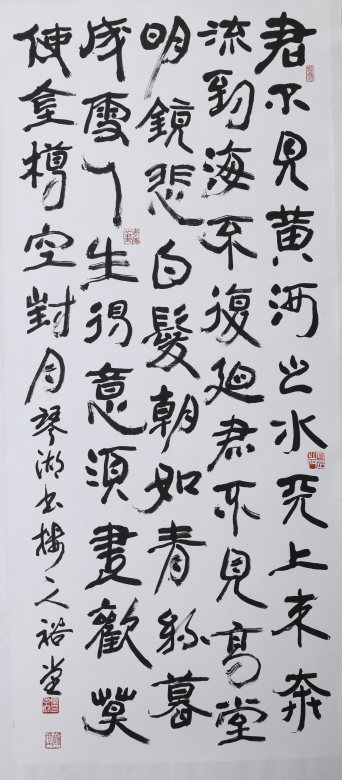 君不見黃河之水天上来奔
流到海不復廻君不見高堂
明鏡悲白髮朝如青絲暮
成雪人生得意須盡歡莫
使金樽空對月 琴湖書樓主人裕堂